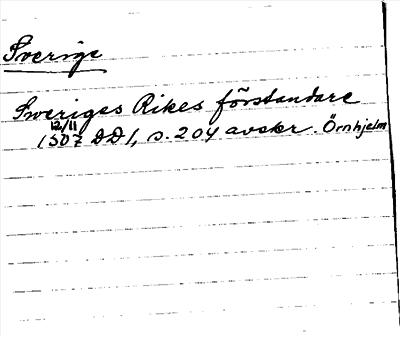 Sverige
Sveriges Rikes förstandare
12/11
1507 DD1, s. 204 avskr. Örnhjelm